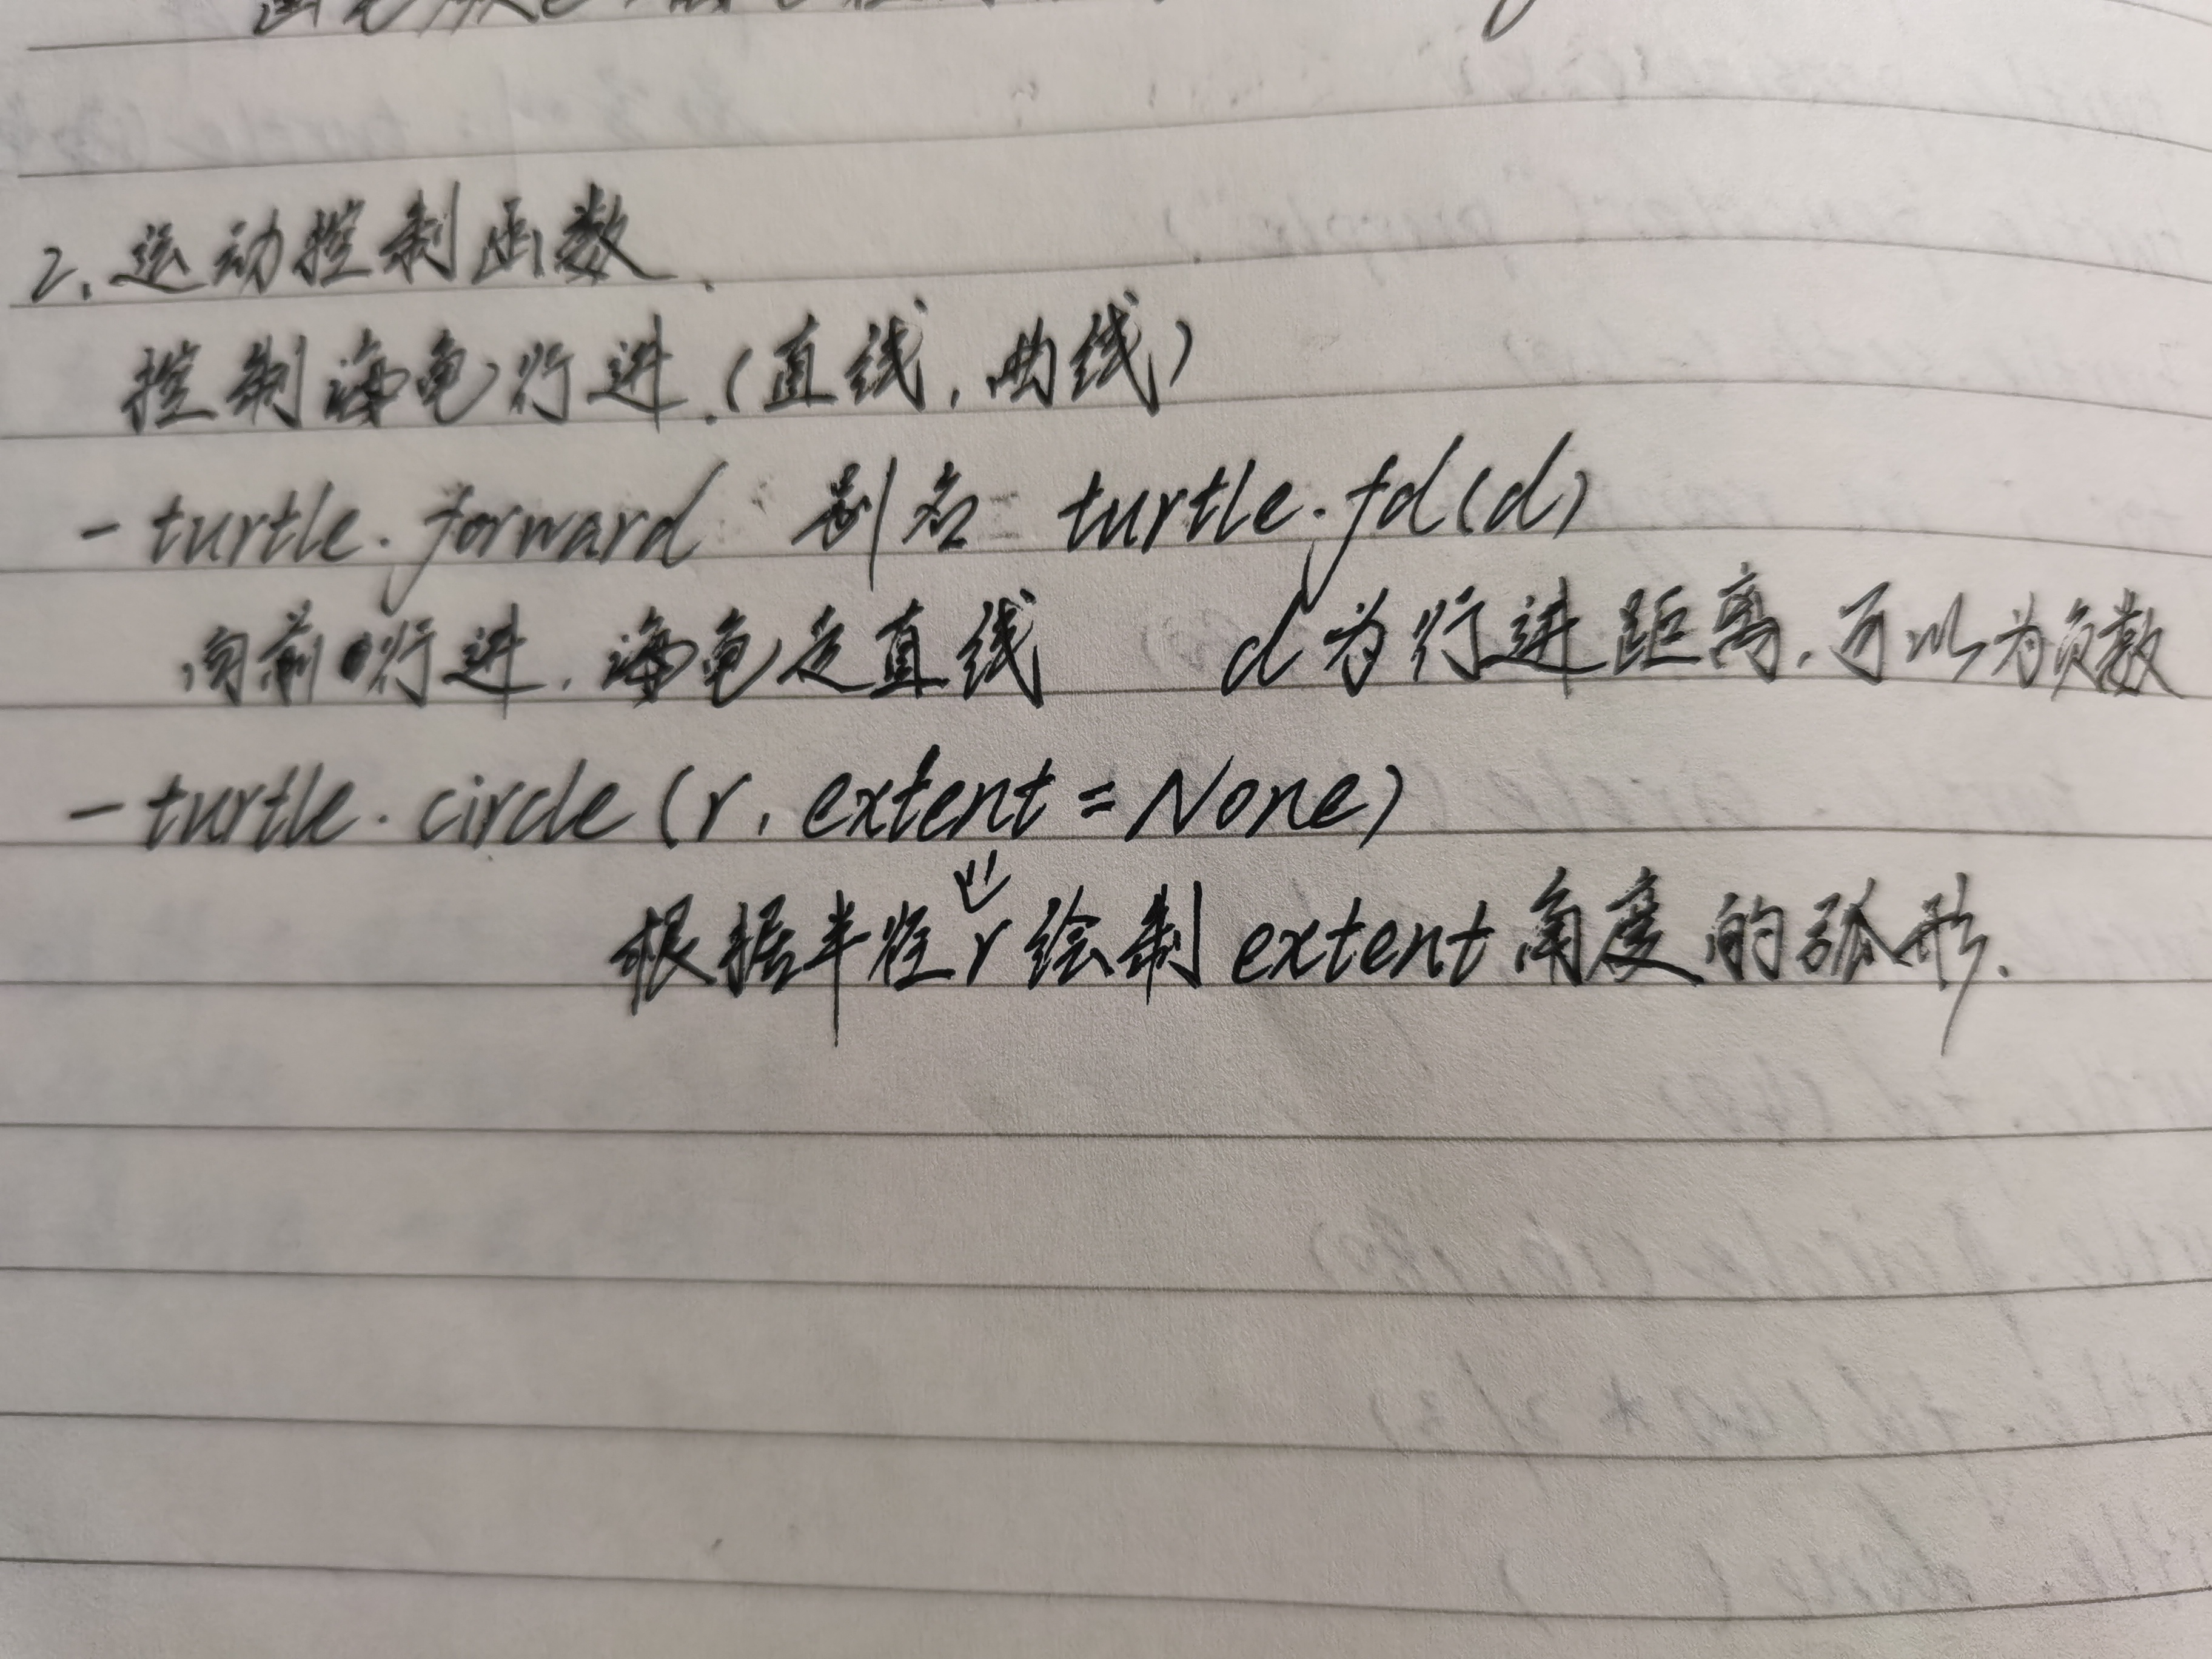 2.运动控制函数.
控制海龟行进.(直线,曲线)
-turtle.forward 别名 turtle.fd(d)
向前行进,海龟走直线 d为行进距离,可以为负数
-turtle.circle(r,extent=None)
根据半径r绘制extent角度的弧形.